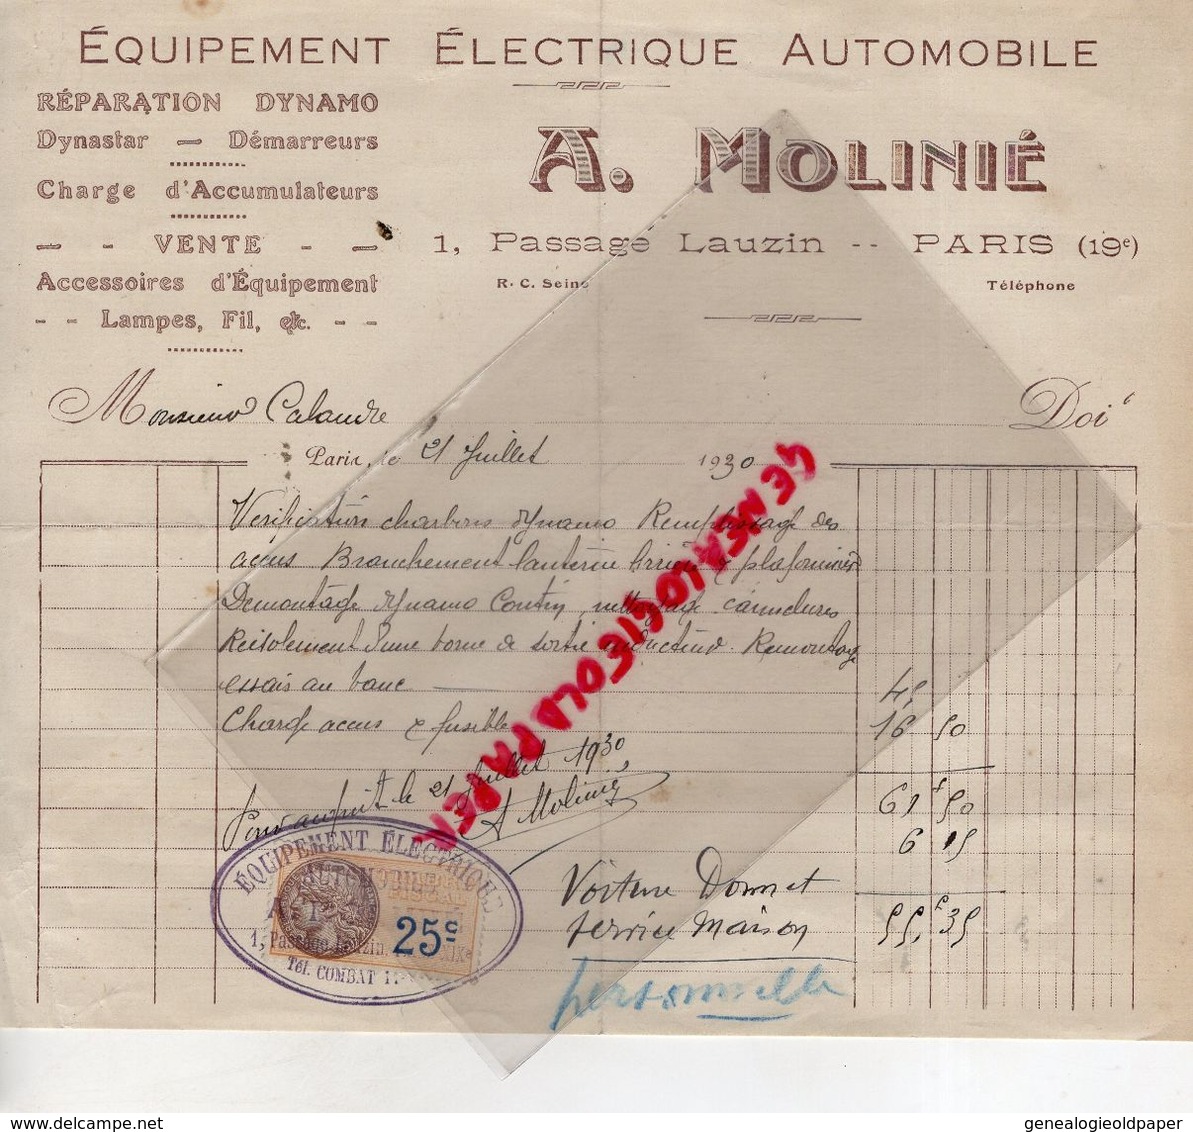 ÉQUIPEMENT ÉLECTRIQUE AUTOMOBILE
RÉPARATION DYNAMO
Dynastar — Démarreurs
Charge d'Accumulateurs
— - VENTE - —
Accessoires d'Équipement
- - Lampes, Fil, etc. - -
A. MOLINIÉ
1, Passage Lauzin -- PARIS (19e)
R. C. Seine
Téléphone
Monsieur Calandre
Doit
Paris, le 21 Juillet 1930
Vérification charbons dynamo Remplissage des
accus Branchement lanterne arrière & plafonnier
Démontage dynamo nettoyage
d'une borne de sortie inducteur Remontage
essais au banc — 45
Charge accus & fusible 16 50
61f 50
6 15
55,f 35
Pour acquit le 21 Juillet 1930
A Molinié
Voiture Donnet
service Maison
personnelle
ÉQUIPEMENT ÉLECTRIQUE
AUTOMOBILE
1, Passage Lauzin,
Tél. COMBAT
25c
GENEALOGIEOLDPAPER
genealogieoldpaper